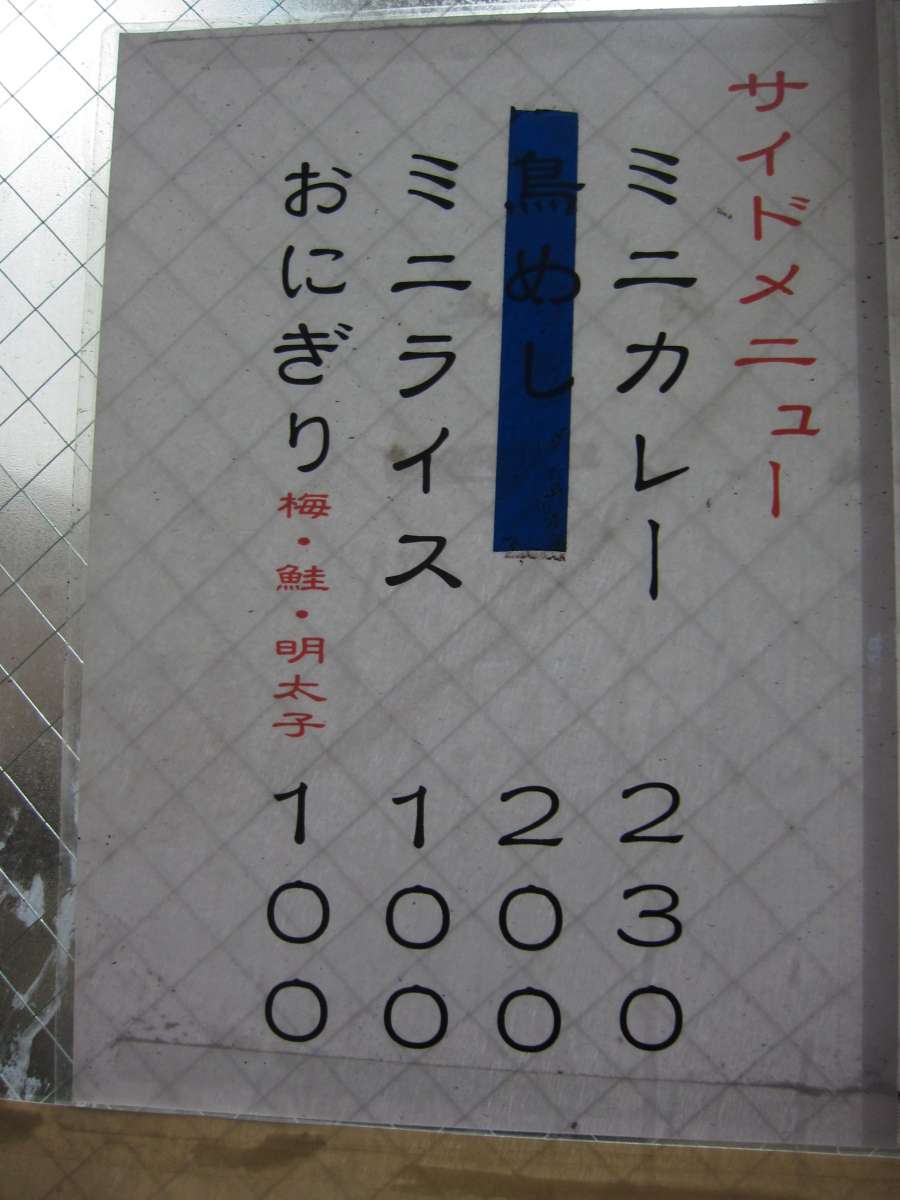 サイドメニュー
ミニカレー 230
鳥めし 200
ミニライス 100
おにぎり 梅・鮭・明太子 100